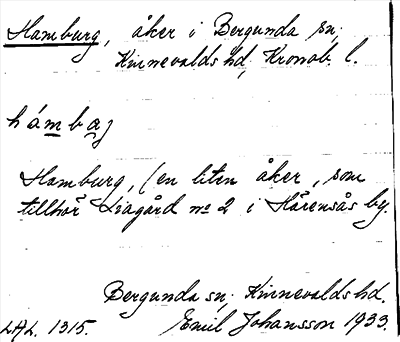 Hamburg, åker i Bergunda sn,
Kinnevalds hd, Kronob. l.
hámbaj
Hamburg, (en liten åker, som
tillhör Liagård no 2 i Härensås by.
Bergunda sn, Kinnevalds hd.
LAL. 1315. Emil Johansson 1933.